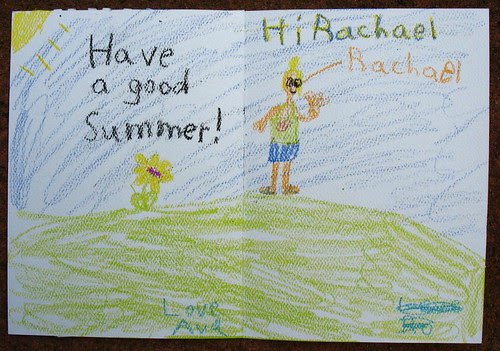 Have
a good
Summer!
Hi Rachael
Rachael
Love
Ava